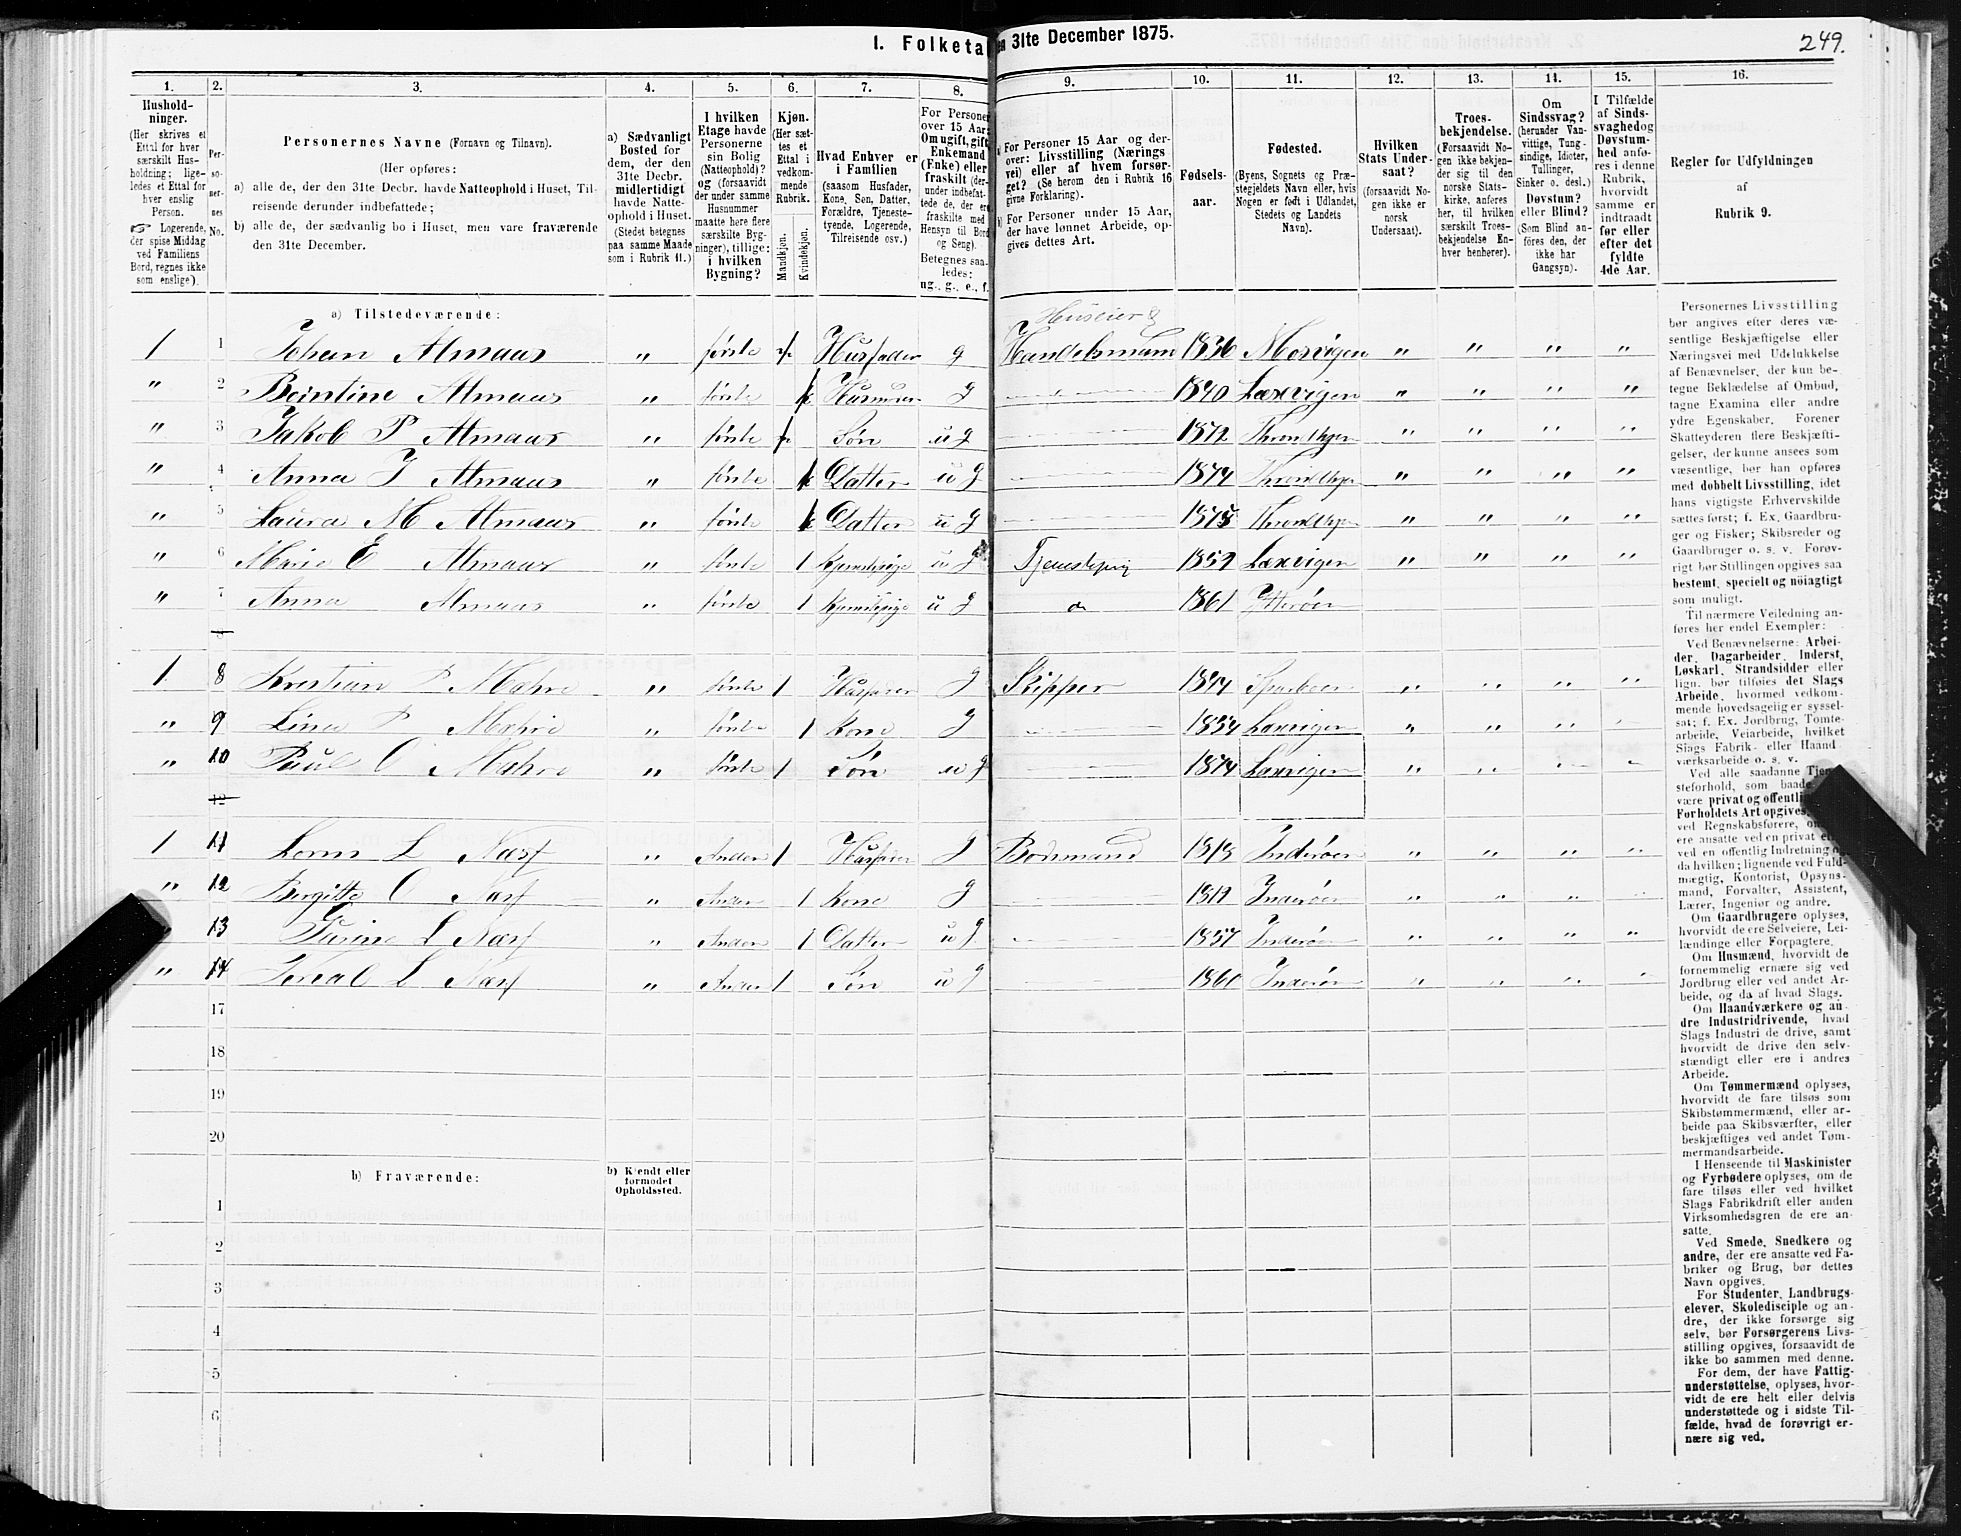 1. Folketa en 31te December 1875.
249.
1. 2. 3. 4. 5. 6. 7. 8. 9. 10. 11. 12. 13. 14. 15. 16.
Hushold-
ninger.
(Her skrives et
Ettal for hver
særskilt Hus-
holdning; lige-
ledes et Ettal for
hver enslig
Person.
☞ Logerende,
der spise Middag
ved Familiens
Bord, regnes ikke
som enslige).
Per-
so-
ner-
nes
No.
Personernes Navne (Fornavn og Tilnavn).
(Her opføres:
a) alle de, der den 31te Decbr. havde Natteophold i Huset, Til-
reisende derunder indbefattede;
b) alle de, der sædvanlig bo i Huset, men vare fraværende
den 31te December.
a) Sædvanligt
Bosted for
dem, der den
31te Decbr.
midlertidigt
havde Natte-
ophold i Huset.
(Stedet betegnes
paa samme Maade
som i Rubrik 11.)
I hvilken
Etage havde
Personerne
sin Bolig
(Natteophold)?
og (forsaavidt
der under samme
Husnummer
maatte høre flere
særskilte Byg-
ninger), tillige:
i hvilken
Bygning?
Kjøn.
(Her sæt-
tes et
Ettal i
vedkom-
mende
Rubrik.
Mandkjøn.
Kvindekjøn.
Hvad Enhver er
i Familien
(saasom Husfader,
Kone, Søn, Datter,
Forældre, Tjeneste-
tyende, Logerende,
Tilreisende osv.)
For Personer
over 15 Aar:
Om ugift, gift,
Enkemand
(Enke) eller
fraskilt (der-
under indbefat-
tede de, der ere
fraskilte med
Hensyn til Bord
og Seng).
Betegnes saa-
ledes:
ug., g., e., f.
a) For Personer 15 Aar og der-
over: Livsstilling (Nærings
vei) eller af hvem forsør-
get? (Se herom den i Rubrik 16
givne Forklaring).
b) For Personer under 15 Aar,
der have lønnet Arbeide, op-
gives dettes Art.
Fødsels-
aar.
Fødested.
(Byens, Sognets og Præ-
stegjeldets Navn eller, hvis
Nogen er født i Udlandet,
Stedets og Landets
Navn).
Hvilken
Stats Under-
saat?
(forsaavidt No-
gen ikke er
norsk
Undersaat).
Troes-
bekjendelse.
(Forsaavidt No-
gen ikke bekjen-
der sig til den
norske Stats-
kirke, anføres
her, til hvilken
særskilt Troes-
bekjendelse En-
hver henhører).
Om
Sindssvag?
(herunder Van-
vittige, Tung-
sindige, Idioter,
Tullinger,
Sinker o. desl.)
Døvstum?
eller Blind?
(Som Blind an-
føres den, der
ikke har
Gangsyn).
I Tilfælde
af Sinds-
svaghed og
Døvstum-
hed anfø-
res i denne
Rubrik,
hvorvidt
samme er
indtraadt
før eller
efter det
fyldte
4de Aar.
Regler for Udfyldningen
af
Rubrik 9.
a) Tilstedeværende:
Huseier &
1 1 Johan Almaas " første 1 Husfader g Handelsmann 1836 Mosvigen " " " "
" 2 Berntine Almaas " første 1 Husmoder g 1840 Lexvigen " " " "
" 3 Jakob P Almaas " første 1 Søn u g 1872 Throndhjem " " " "
" 4 Anna J Almaas " første 1 Datter u g 1874 Throndhjem " " " "
" 5 Laura M Almaas " første 1 Datter u g 1875 Throndhjem " " " "
" 6 Marie E Almaas " første 1 Tjenstepige u g Tjenstepig 1852 Lexvigen " " " "
" 7 Anna Almaas " første 1 Tjenstepige u g do 1861 Ytterøen
8
1 8 Kristian P Mahre " første 1 Husfader g Skipper 1844 Sparboen " " " "
" 9 Lina P Mahre " første 1 Kone g 1854 Lexvigen " " " "
" 10 Paul O Mahre " første 1 Søn u g 1874 Lexvigen " " " "
12
1 11 Lorns L Næss " Anden 1 Husfader g Bodsmand 1813 Inderøen " " " "
" 12 Birgitte O Næss " Anden 1 Kone g 1812 Inderøen " " " "
" 13 L Næss " Anden 1 Datter u g 1857 Inderøen " " " "
" 14 L Næss " Anden 1 Søn u g 1860 Inderøen " " " "
17
18
19
20
b) Fraværende:
b) Kjendt eller
formodet
Opholdssted.
1
2
3
4
5
6
Personernes Livsstilling
bør angives efter deres væ-
sentlige Beskjæftigelse eller
Næringsvei med Udelukkelse
af Benævnelser, der kun be-
tegne Beklædelse af Ombud,
tagne Examina eller andre
ydre Egenskaber. Forener
Skatteyderen flere Beskjæfti-
gelser, der kunne ansees som
væsentlige, bør han opføres
med dobbelt Livsstilling, idet
hans vigtigste Erhvervskilde
sættes først; f. Ex. Gaardbru-
ger og Fisker; Skibsreder og
Gaardbruger o. s. v. Forøv-
rigt bør Stillingen opgives saa
bestemt, specielt og nøiagtigt
som muligt.
Til nærmere Veiledning an-
føres her endel Exempler:
Ved Benævnelserne: Arbei-
der, Dagarbeider, Inderst,
Løskarl, Strandsidder eller
lign. bør tilføies det Slags
Arbeide, hvormed vedkom-
mende hovedsagelig er syssel-
sat; f. Ex. Jordbrug, Tomte-
arbeide, Veiarbeide, hvilket
Slags Fabrik- eller Haand-
værksarbeide o. s. v.
Ved alle saadanne Tjene-
steforhold, som baade
være privat og offentlig
Forholdets Art opgives,
ved Regnskabsførere,
ere ansatte ved en privat eller
ved en offentlig Indretning og
da hvilken; lignende ved Fuld-
mægtig, Kontorist, Opsyns-
mand, Forvalter, Assistent,
Lærer, Ingeniør og andre.
Om Gaardbrugere oplyses,
hvorvidt de ere Selveiere, Lei-
lændinge eller Forpagtere.
Om Husmænd, hvorvidt de
fornemmelig ernære sig ved
Jordbrug eller ved andet Ar-
beide, og da af hvad Slags.
Om Haandværkere og an-
dre Industridrivende, hvad
Slags Industri de drive, samt
hvorvidt de drive den selv-
stændigt eller ere i andres
Arbeide.
Om Tømmermænd oplyses,
hvorvidt de fare tilsøs som
Skibstømmermænd, eller ar-
beide paa Skibsværfter, eller
beskjæftiges ved andet Tøm-
mermandsarbeide.
I Henseende til Maskinister
og Fyrbødere oplyses, om de
fare tilsøs eller ved hvilket
Slags Fabrikdrift eller anden
Virksomhedsgren de ere an-
satte.
Ved Smede, Snedkere og
andre, der ere ansatte ved Fa-
briker og Brug, bør dettes
Navn opgives.
For Studenter, Landbrugs-
elever, Skoledisciple og an-
dre, der ikke forsørge sig
selv, bør Forsørgerens Livs-
stilling opgives, forsaavidt de
ikke bo sammen med denne.
For dem, der have Fattig-
understøttelse, oplyses, hvor-
vidt de ere helt eller delvis
understøttede og i sidste Til-
fælde, hvad de forøvrigt er-
nære sig ved.